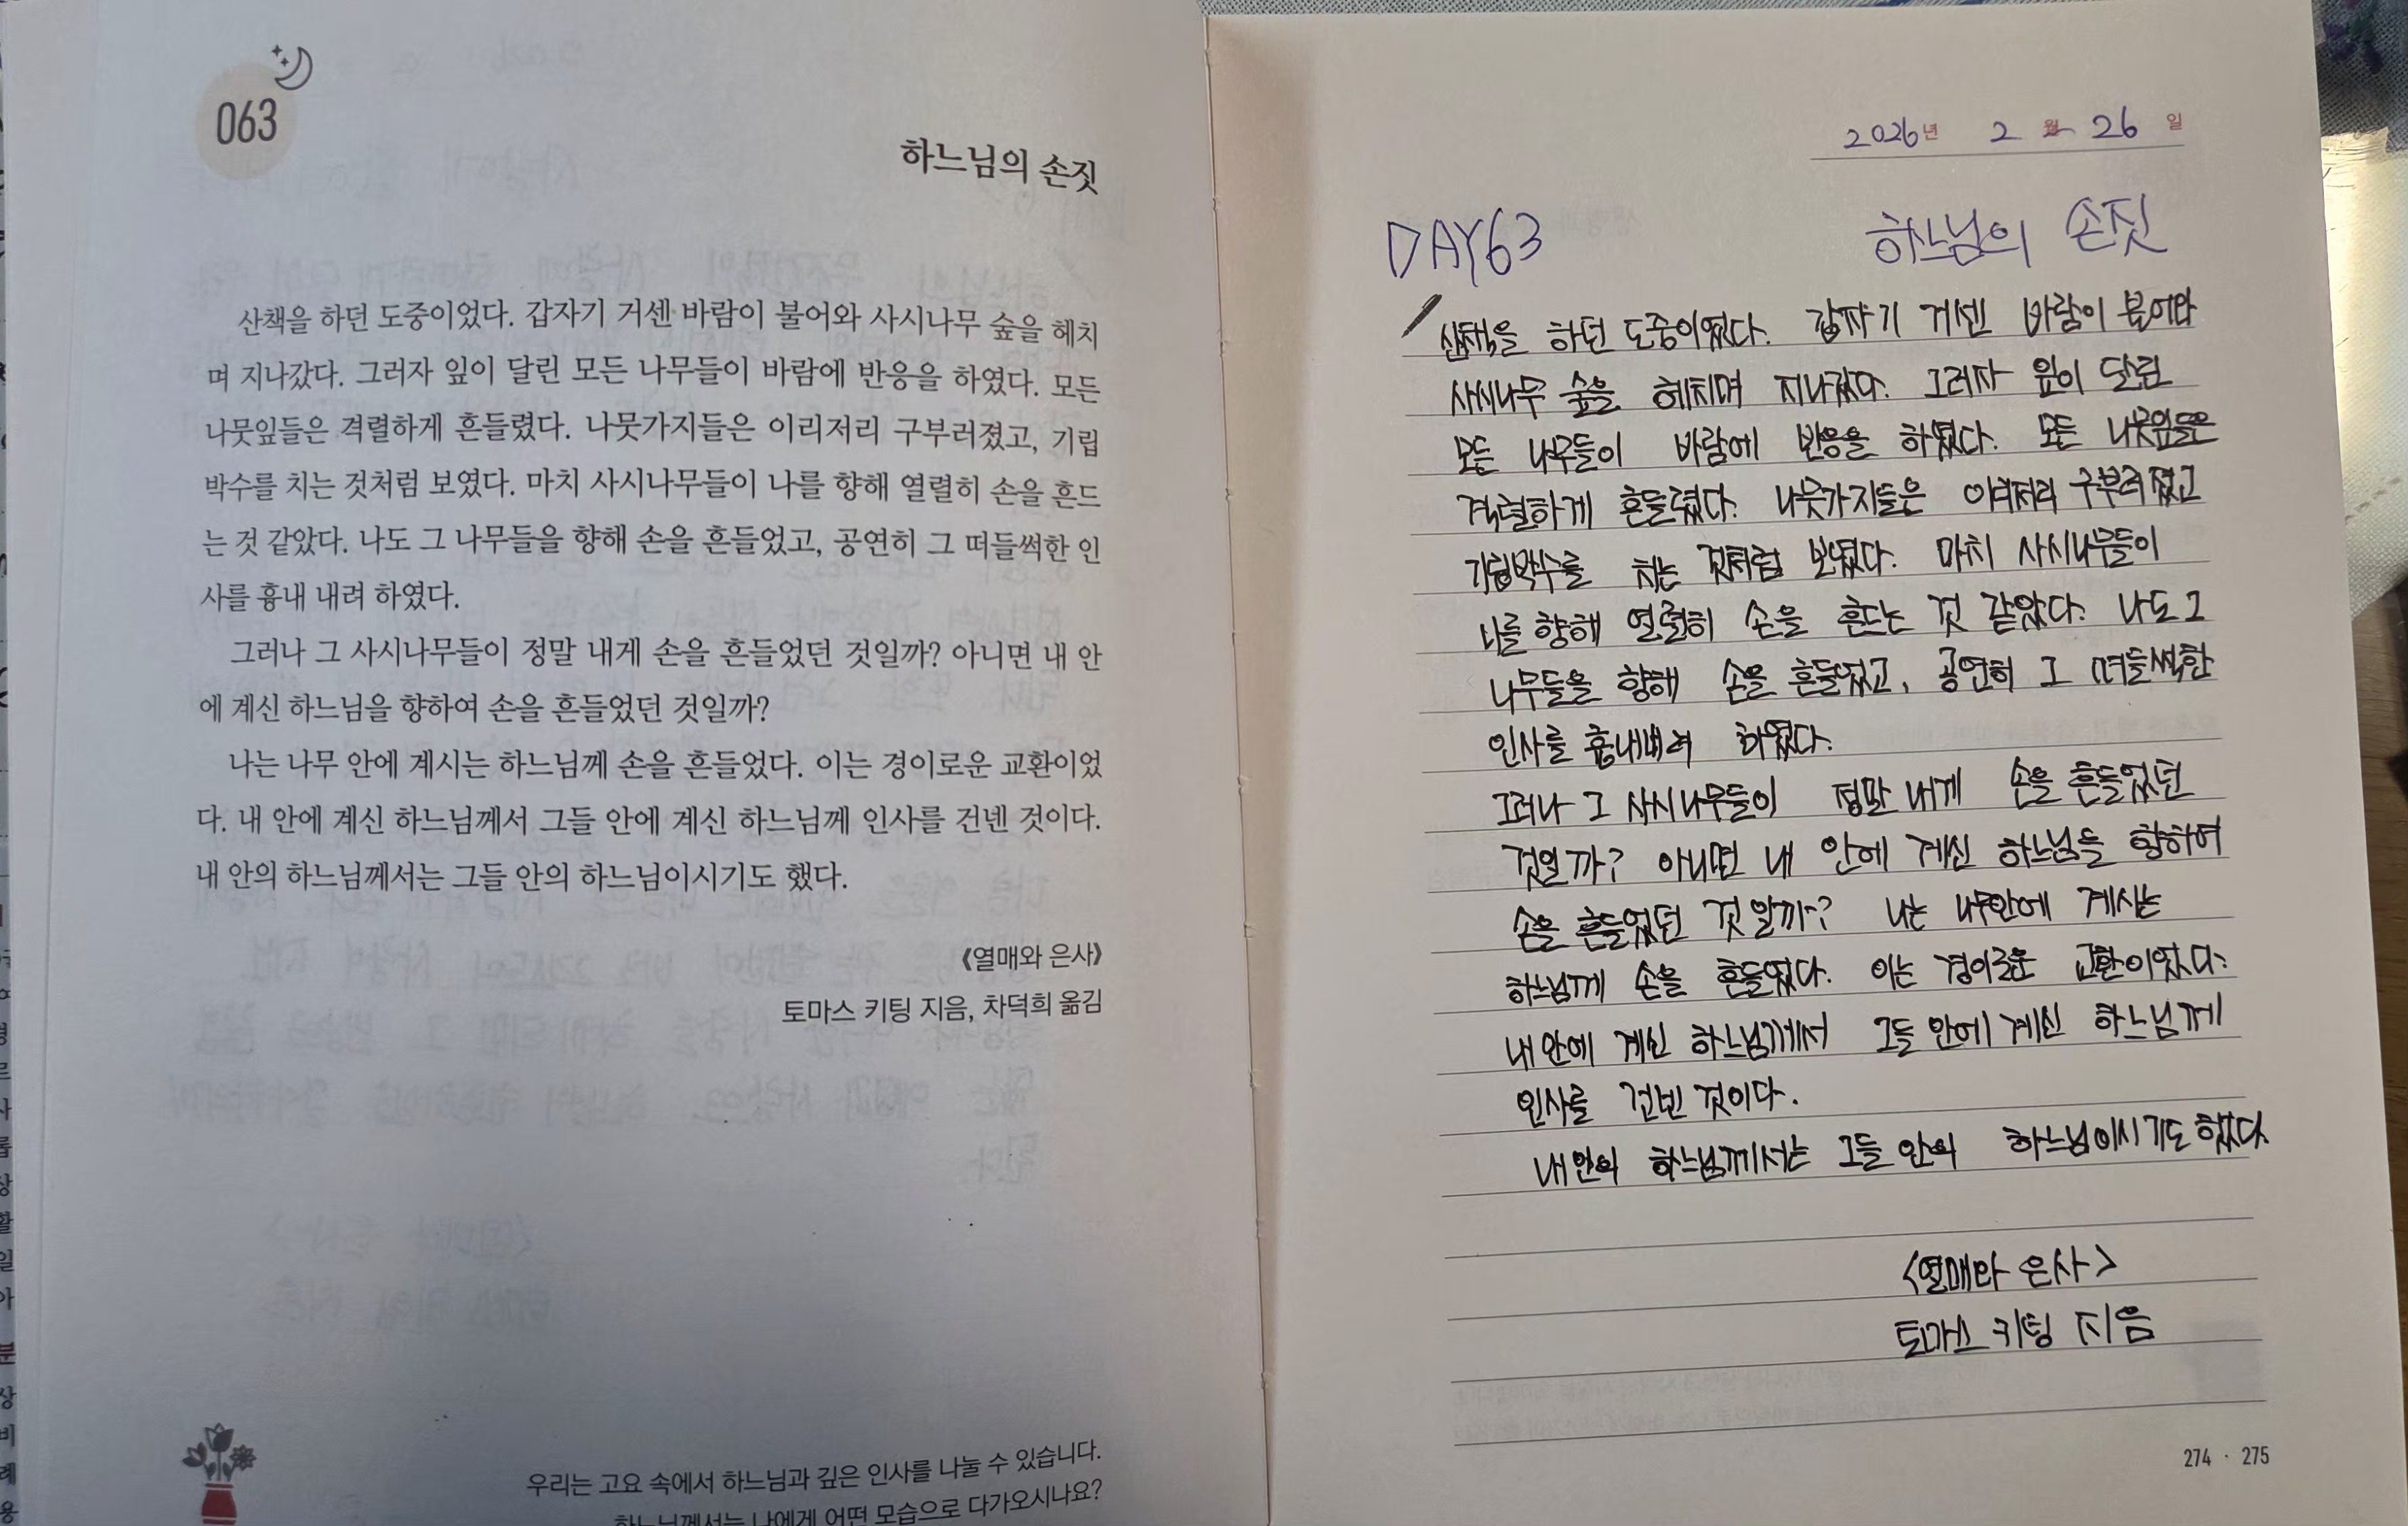 063
하느님의 손짓
산책을 하던 도중이었다. 갑자기 거센 바람이 불어와 사시나무 숲을 헤치
며 지나갔다. 그러자 잎이 달린 모든 나무들이 바람에 반응을 하였다. 모든
나뭇잎들은 격렬하게 흔들렸다. 나뭇가지들은 이리저리 구부러졌고, 기립
박수를 치는 것처럼 보였다. 마치 사시나무들이 나를 향해 열렬히 손을 흔드
는 것 같았다. 나도 그 나무들을 향해 손을 흔들었고, 공연히 그 떠들썩한 인
사를 흉내 내려 하였다.
그러나 그 사시나무들이 정말 내게 손을 흔들었던 것일까? 아니면 내 안
에 계신 하느님을 향하여 손을 흔들었던 것일까?
나는 나무 안에 계시는 하느님께 손을 흔들었다. 이는 경이로운 교환이었
다. 내 안에 계신 하느님께서 그들 안에 계신 하느님께 인사를 건넨 것이다.
내 안의 하느님께서는 그들 안의 하느님이시기도 했다.
《열매와 은사》
토마스 키팅 지음, 차덕희 옮김
우리는 고요 속에서 하느님과 깊은 인사를 나눌 수 있습니다.
하느님께서는 나에게 어떤 모습으로 다가오시나요?
2026년 2월 26일
DAY63 하느님의 손짓
산책을 하던 도중이었다. 갑자기 거센 바람이 불어와
사시나무 숲을 헤치며 지나갔다. 그러자 잎이 달린
모든 나무들이 바람에 반응을 하였다. 모든 나뭇잎들은
격렬하게 흔들렸다. 나뭇가지들은 이리저리 구부러졌고
기립박수를 치는 것처럼 보였다. 마치 사시나무들이
나를 향해 열렬히 손을 흔드는 것 같았다. 나도 그
나무들을 향해 손을 흔들었고, 공연히 그 떠들썩한
인사를 흉내내려 하였다.
그러나 그 사시나무들이 정말 내게 손을 흔들었던
것일까? 아니면 내 안에 계신 하느님을 향하여
손을 흔들었던 것일까? 나는 나무안에 계시는
하느님께 손을 흔들었다. 이는 경이로운 교환이었다.
내 안에 계신 하느님께서 그들 안에 계신 하느님께
인사를 건넨 것이다.
내 안의 하느님께서는 그들 안의 하느님이시기도 했다.
<열매와 은사>
토마스 키팅 지음
274 · 275